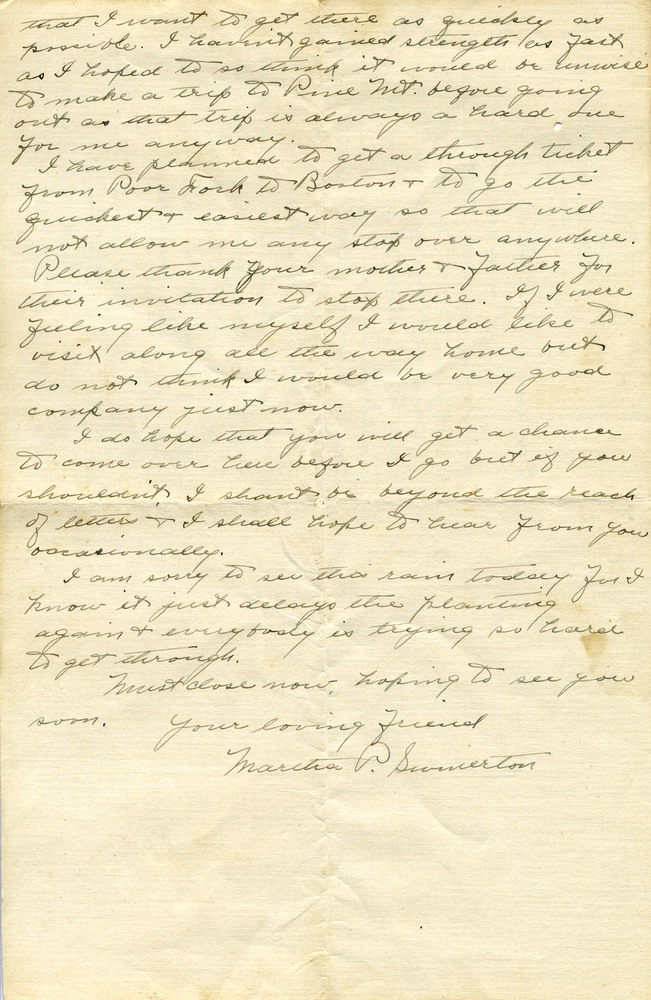 that I want to get there as quickly as
possible. I haven't gained strength as fast
as I hoped to so think it would be unwise
to make a trip to Pine Mt. before going
out as that trip is always a hard one
for me anyway.
I have planned to get a through ticket
from Poor Fork to Boston & to go the
quickest & easiest way so that will
not allow me any stop over anywhere.
Please thank your mother & father for
their invitation to stop there. If I were
feeling like myself I would like to
visit along all the way home but
do not think I would be very good
company just now.
I do hope that you will get a chance
to come over here before I go but if you
shouldn't, I shant be beyond the reach
of letters & I shall hope to hear from you
occasionally.
I am sorry to see the rain today for I
know it just delays the planting
again & everybody is trying so hard
to get through.
Must close now, hoping to see you
soon. Your loving friend
Martha P. Swinerton